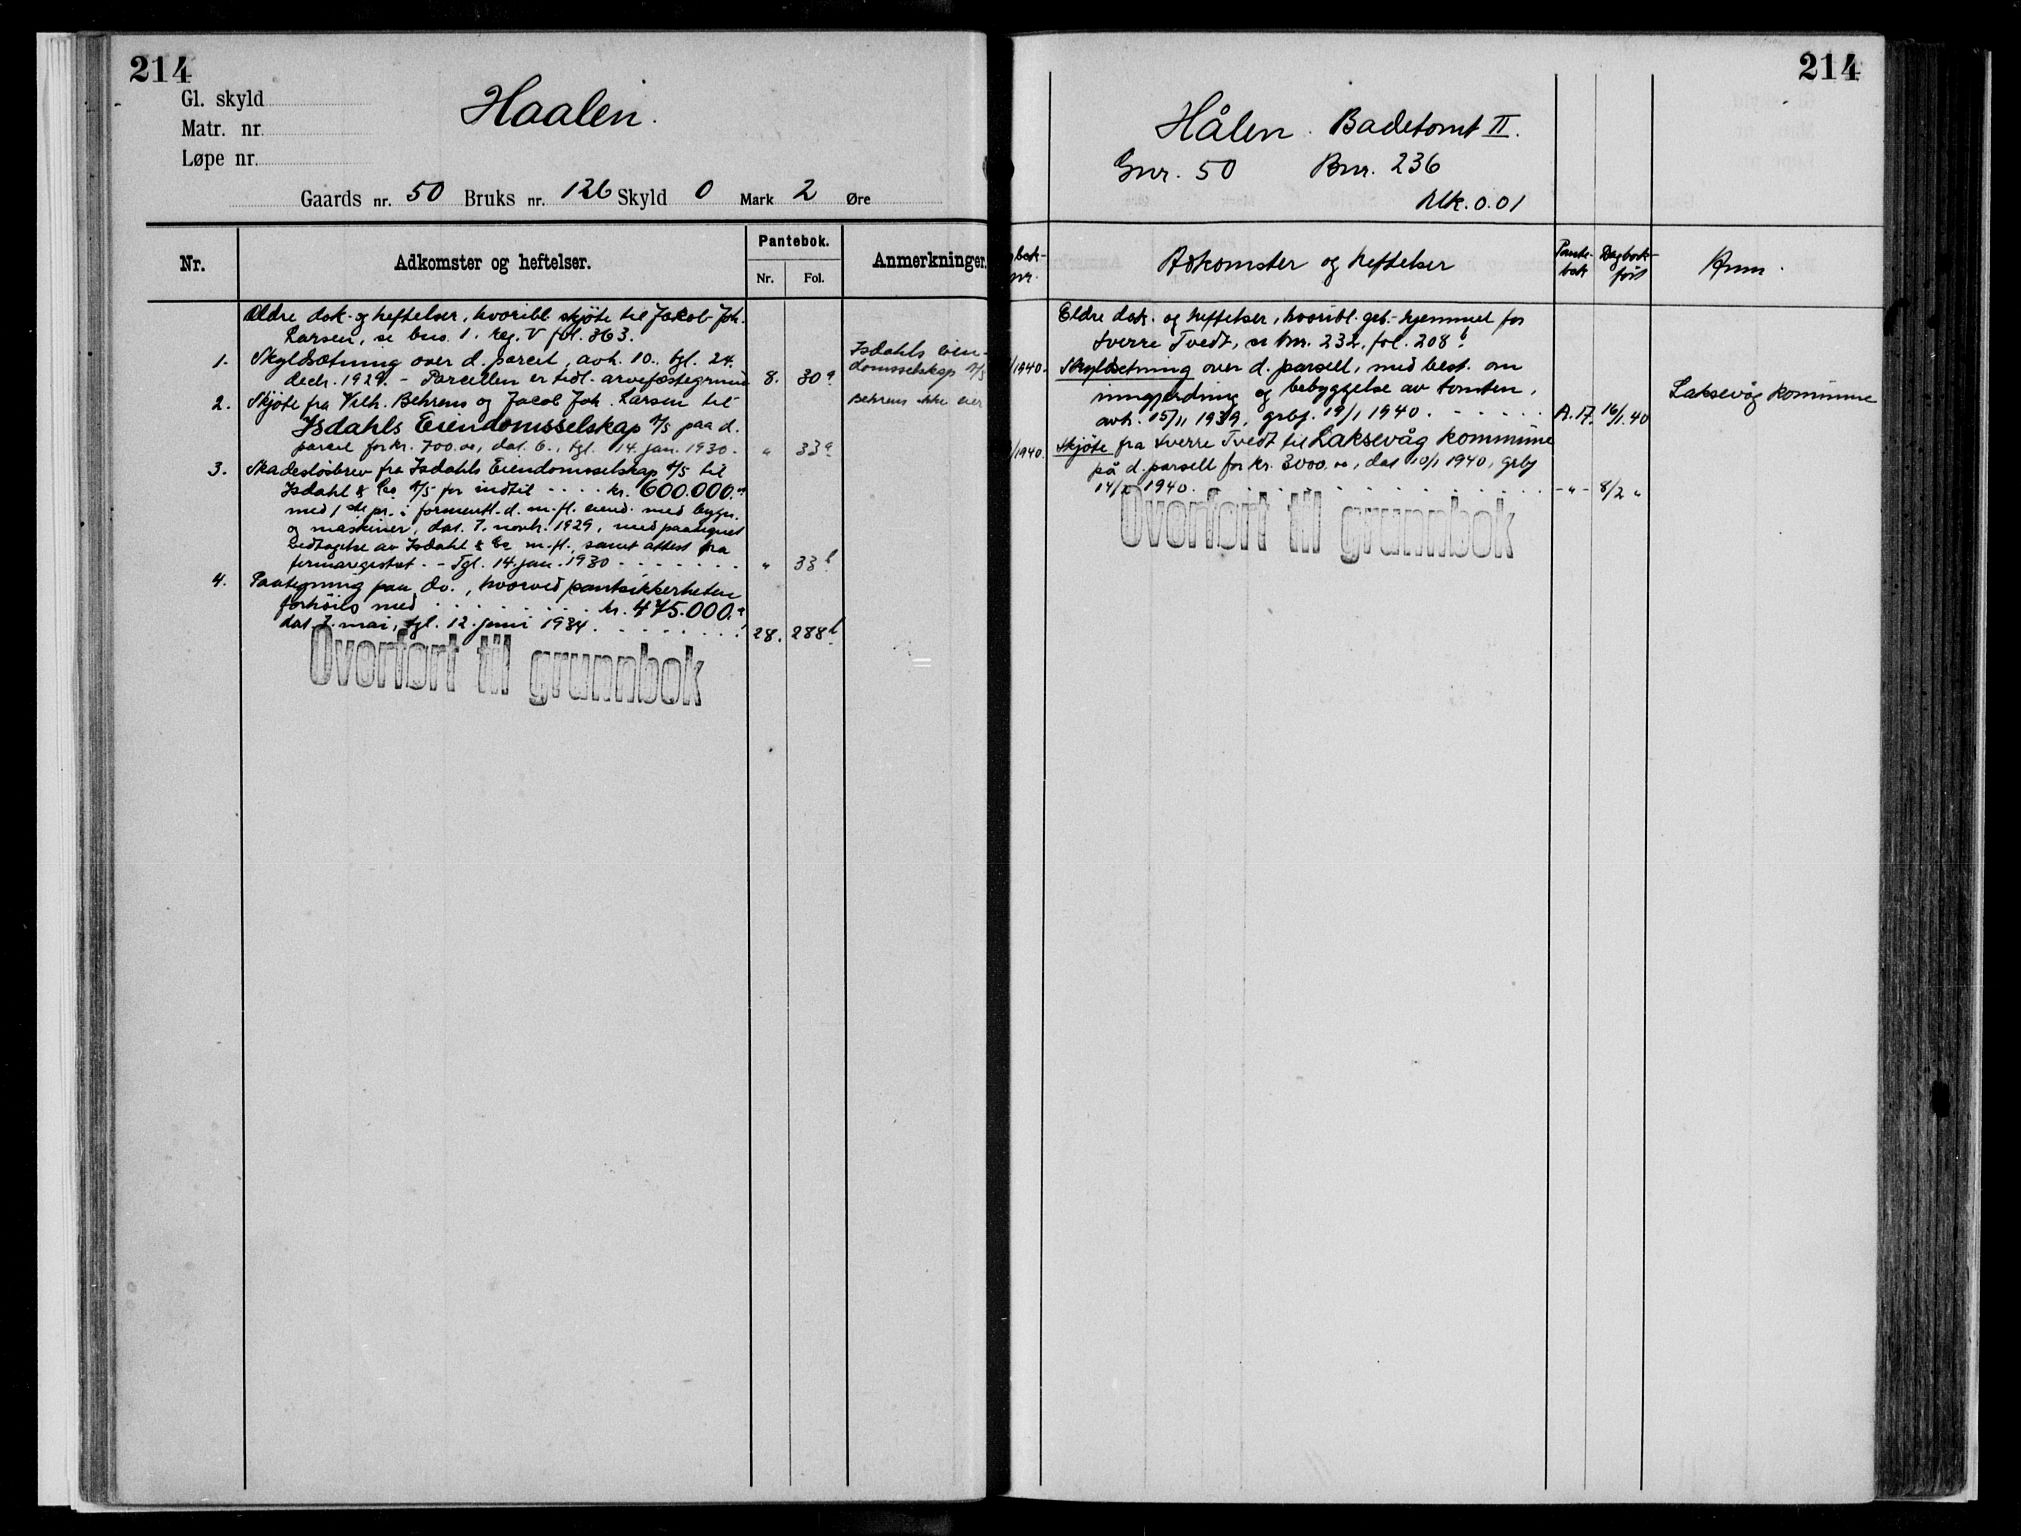 214
Gl. skyld
Matr. nr
Løpe nr.
Haalen.
Gaards nr. 50 Bruks nr. 126 Skyld 0 Mark 2 Øre
Nr.
Adkomster og heftelser.
Pantebok.
Nr. Fol.
Anmerkninger.
Ældre dok. og heftelser, hvoribl. skjöte til Jakob Joh.
Larsen, se bno. 1. reg. V fol. 363.
1. Skyldsætning over d. parcel, avh. 10., tgl. 24.
decbr. 1929. - Parcellen er tidl. arvefæstegrund 8. 30 a
Isdahls Eien-
domsselskap A/S
2. Skjöte fra Vilh. Behrens og Jacob Joh. Larsen til
Behrens ikke eier
Isdahls Eiendomsselskap A/S paa d.
parcel for kr. 700.00, dat. 6., tgl. 14. jan. 1930. " 33 a
3. Skadeslösbrev fra Isdahls Eiendomsselskap A/S til
Isdahl & Co A/S for indtil .... kr. 600.000.00
med 1ste pr. i formentl. d. m. fl. eiend. med bygn.
og maskiner, dat. 7. novbr. 1929, med paategnet
vedtagelse av Isdahl & Co m. fl., samt attest fra
firmaregistret. - Tgl. 14 jan. 1930 ....... " 33 b
4. Paategning paa do., hvorved pantsikkerheten
forhöies med ........ kr. 475.000.00
dat. 7. mai, tgl. 12. juni 1934. ....... 28. 288 b
Overført til grunnbok
214
Hålen. Badetomt II.
Gnr. 50 Bnr. 236
Mk. 0.01
Adkomster og heftelser
Pante-
bok
Dagbok-
fört
Anm.
Eldre dok. og heftelser, hvoribl. grb.- hjemmel for
Sverre Tvedt, se bnr. 232, fol. 208 b
/1940. Skyldsetning over d. parsell, med best. om
inngjerding og bebyggelse av tomten,
avh. 15/11 1939, grbf. 19/1 1940. ..... A.17. 16/1.40
Laksevåg kommune
/1940. Skjöte fra Sverre Tvedt til Laksevåg kommune
på d. parsell for kr. 3000.00, dat 10/1 1940, grbf
14/2 1940. ............ -"- 8/2 "
Overført til grunnbok